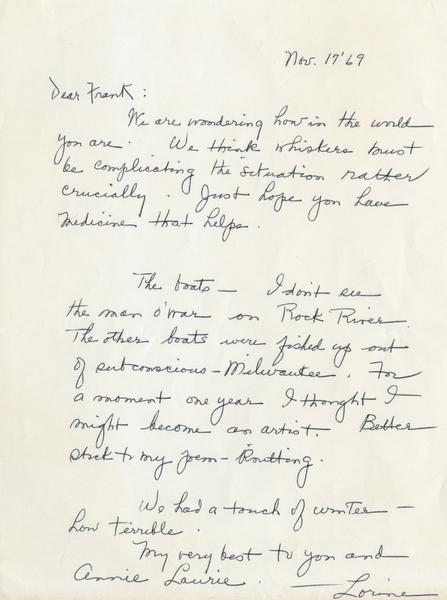 Nov. 17 '69
Dear Frank :
We are wondering how in the world
you are. We think whiskers must
be complicating the situation rather
crucially. Just hope you have
medicine that helps.
The boats — I don't see
the man o'war on Rock River.
The other boats were fished up out
of subconscious – Milwaukee. For
a moment one year I thought I
might become an artist. Better
stick to my poem – Knitting.
We had a touch of winter —
how terrible.
My very best to you and
Annie Laurie. — Lorine